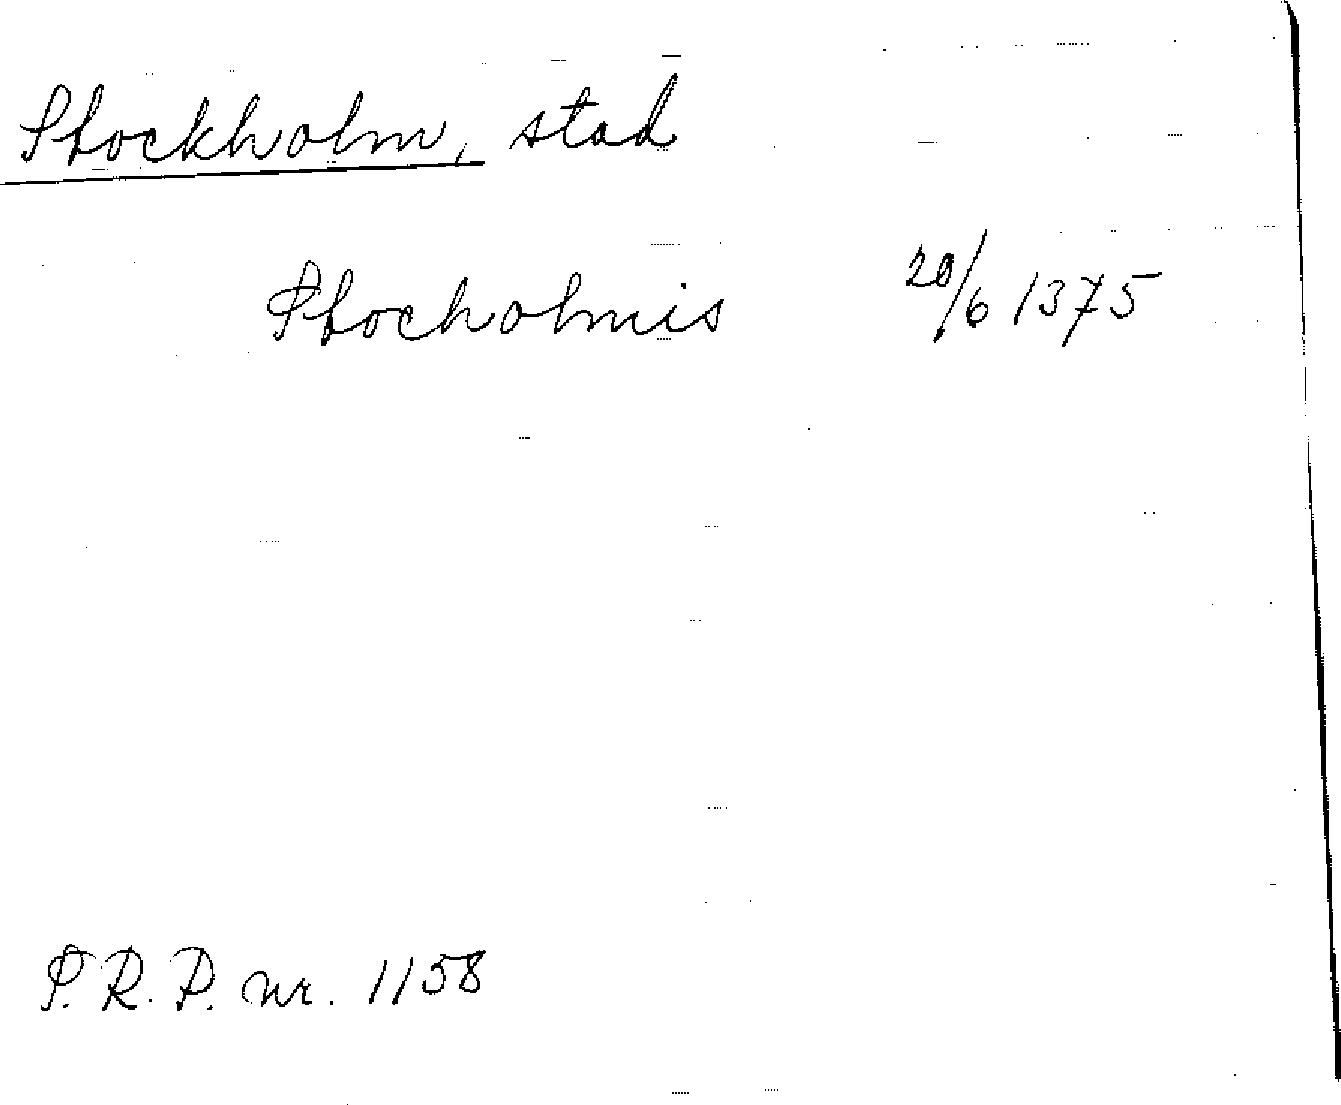 Stockholm, stad
Stocholmis 20/6 1375
S.R.P. nr. 1158